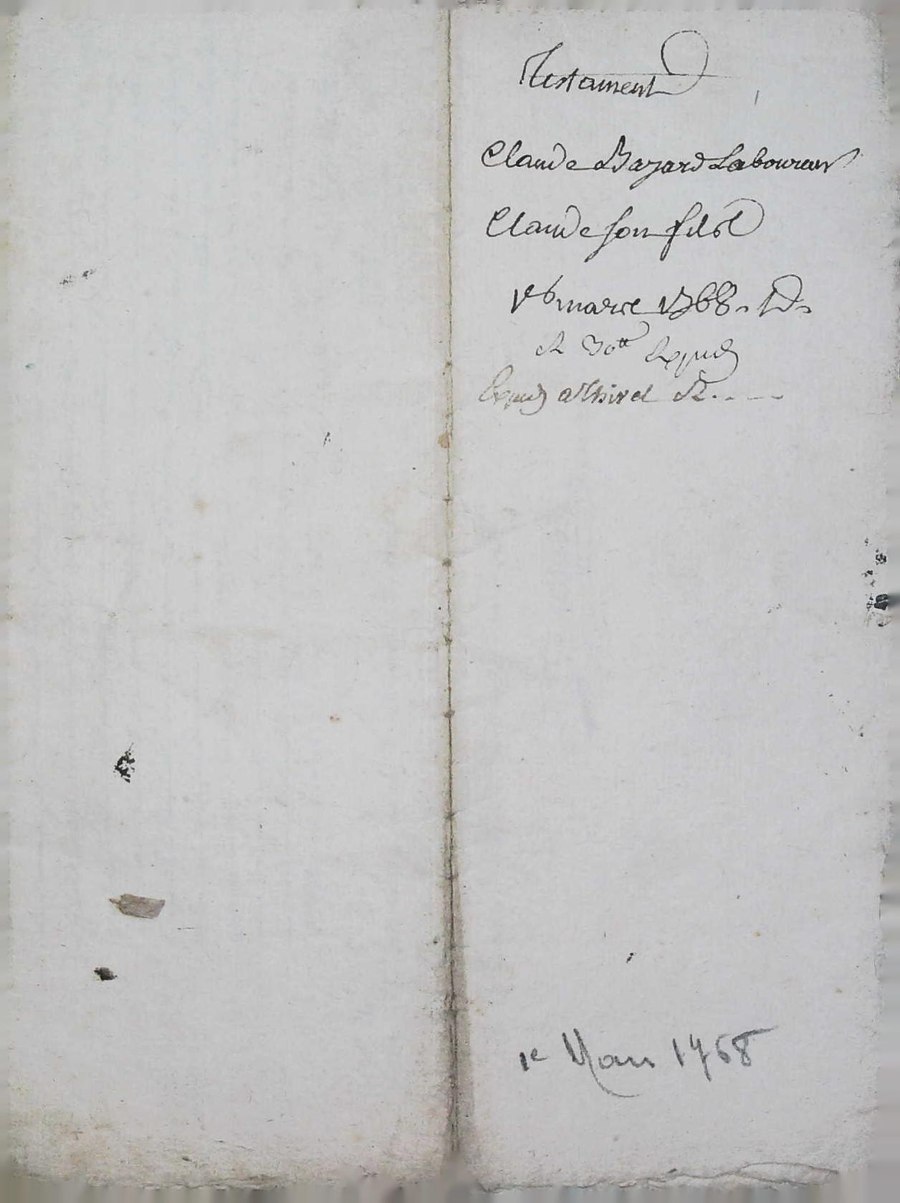 Testament
Claude Bazard Laboureur
Claude son fils
1er mars 1768
et 30tt
1e Mars 1768